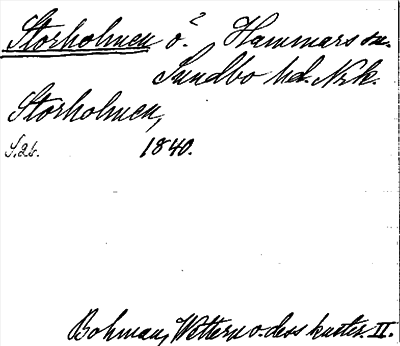 Storholmen ö.² Hammars sn.
Sundbo hd. Nrk.
Storholmen,
S. 26. 1840.
Bohman, Wettern o. dess kuster. II.